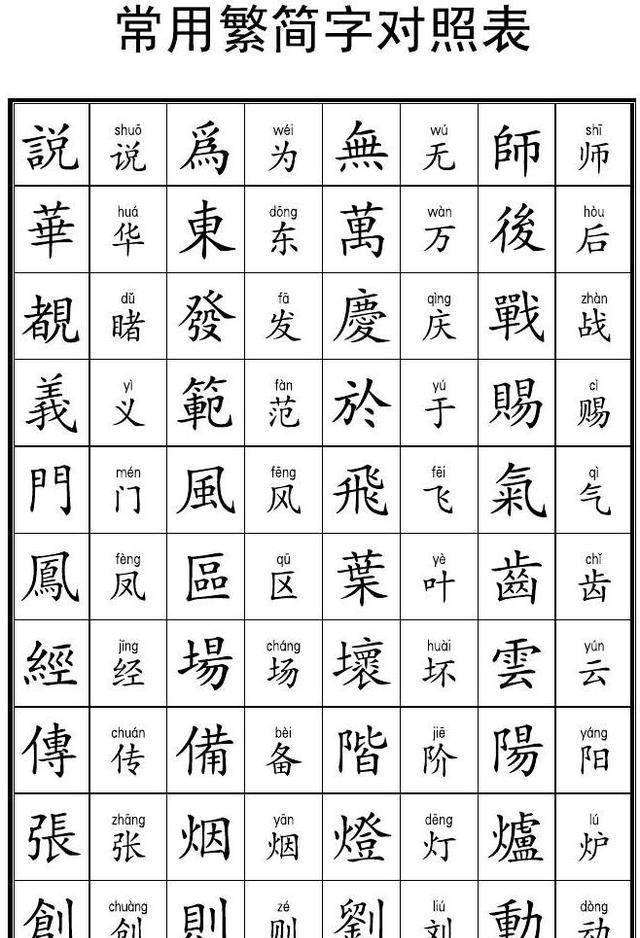 常用繁简字对照表
shuō wéi wú shī
説 说 爲 为 無 无 師 师
huá dōng wàn hòu
華 华 東 东 萬 万 後 后
dǔ fā qìng zhàn
覩 睹 發 发 慶 庆 戰 战
yì fàn yú cì
義 义 範 范 於 于 賜 赐
mén fēng fēi qì
門 门 風 风 飛 飞 氣 气
fèng qū yè chǐ
鳳 凤 區 区 葉 叶 齒 齿
jīng cháng huài yún
經 经 場 场 壞 坏 雲 云
chuán bèi jiē yáng
傳 传 備 备 階 阶 陽 阳
zhāng yān dēng lú
張 张 烟 烟 燈 灯 爐 炉
chuàng zé liú dòng
創 创 則 则 劉 刘 動 动